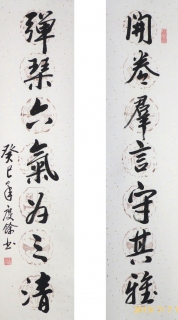 開卷群言守其雅
彈琴六氣為之清
癸巳年廋餘書